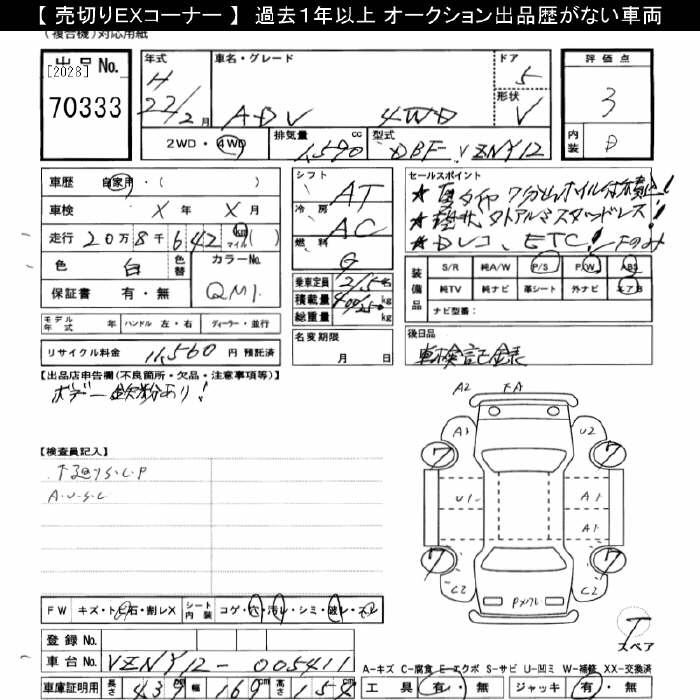 【 売切りEXコーナー 】 過去１年以上 オークション出品歴がない車両
(複合機)対応用紙
出品No.
[2028]
70333
年式
H
22/2月
車名・グレード
ADV 4WD
ドア
5
形状
V
評価点
3
内装
D
2WD・4WD
排気量
1,590 cc
型式
DBF-VZNY12
車歴 自家用・( )
車検 X年 X月
走行 20万8千642 km マイル ( )
色 白 色替 カラーNo.
QM1.
保証書 有・無
シフト
AT
冷房
AC
燃料
G
乗車定員 2/5名
積載量 400/250 kg
総重量 kg
セールスポイント
★Dレコ、ETC!
装備品
S/R 純A/W P/S P/W ABS
純TV 純ナビ 革シート 外ナビ エアB
ナビ型番：
モデル年式 年 ハンドル 左・右 ディーラー・並行
リサイクル料金 11,560 円 預託済
名変期限
月 日
後日品
車検記録
【出品店申告欄(不良箇所・欠品・注意事項等)】
ボデー鉄粉あり!
【検査員記入】
下廻りS・C・P
A・U・S・C
A2 FA
A3 U2
7 7
U1 A1
A1
7 7
C2 C2
Pメクレ
T
スペア
FW キズ・ト石・割レX シート内装 コゲ・穴・汚レ・シミ・破レ・スレ
登録No.
車台No. VZNY12-005411
車庫証明用 長さ 439cm 幅 169cm 高さ 154cm
A-キズ C-腐食 E-エクボ S-サビ U-凹ミ W-補修 XX-交換済
工具 有・無 ジャッキ 有・無